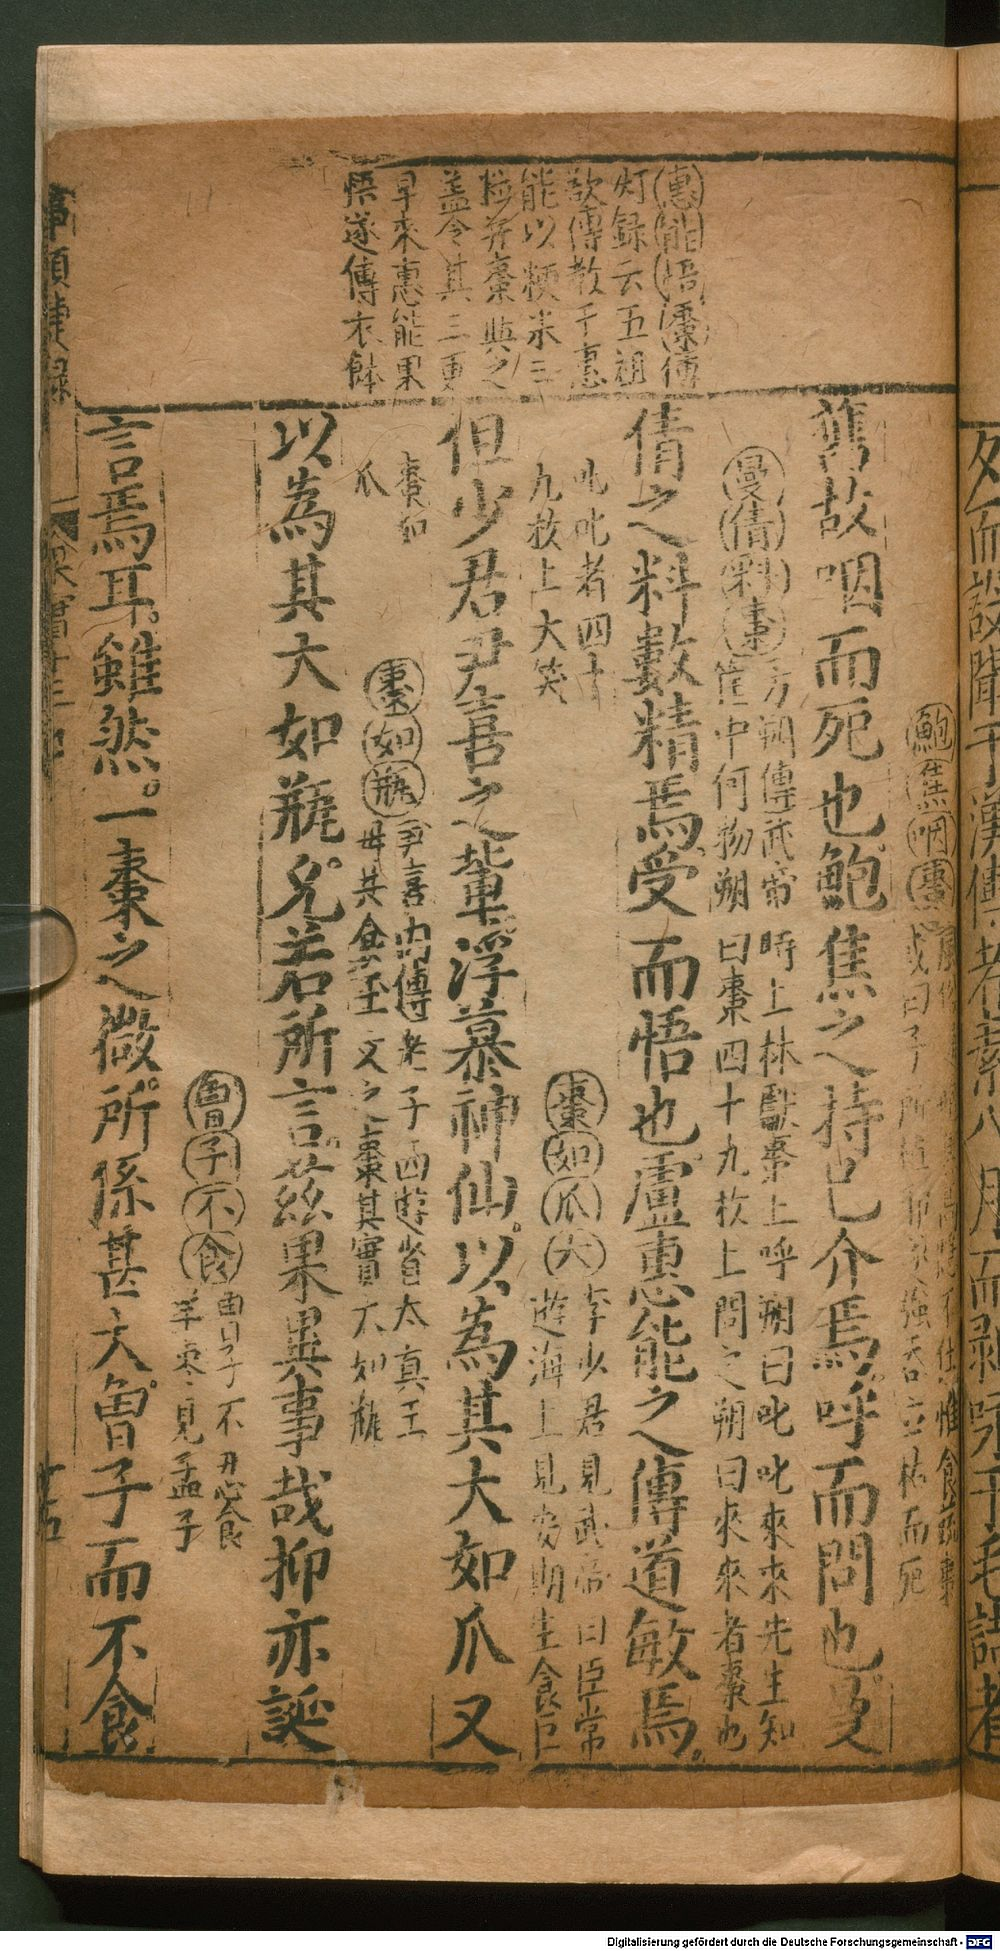 惠能悟棗傳
灯録云五祖
欲傳教于惠
能以粳米三
粒并棗與之
盖令其三更
早來惠能果
悟遂傳衣鉢
鮑焦咽棗
不仕惟食蔬棗
或曰子所植耶遂強吞立枯而死
舊故咽而死也鮑焦之持已介焉呼而問也曼
曼倩料棗方朔傳武帝時上林獻棗上呼朔曰叱叱來來先生知
筐中何物朔曰棗四十九枚上問之朔曰來來者棗也
倩之料數精焉受而悟也盧惠能之傳道敏焉
叱叱者四十
九枚上大笑
棗如瓜大李少君見武帝曰臣常
遊海上見安期生食巨
但少君尹喜之輩浮慕神仙以為其大如瓜又
棗如
瓜
棗如瓶尹喜内傳老子西遊省太真王
母共食玉文之棗其實大如瓶
以為其大如瓶兒若所言茲果異事哉抑亦誕
曾子不食曾子不忍食
羊棗見孟子
言焉耳雖然一棗之微所係甚大曾子而不食
Digitalisierung gefördert durch die Deutsche Forschungsgemeinschaft - DFG